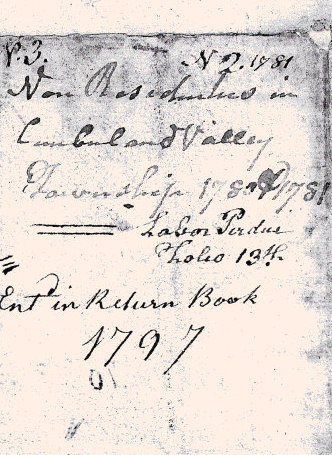 V. 3.
N 2. 1781
Non Residents in
Cumberland Valley
Township 1780 & 1781
Labor Perdue
Folio 13th
Ent'd in Return Book
1797